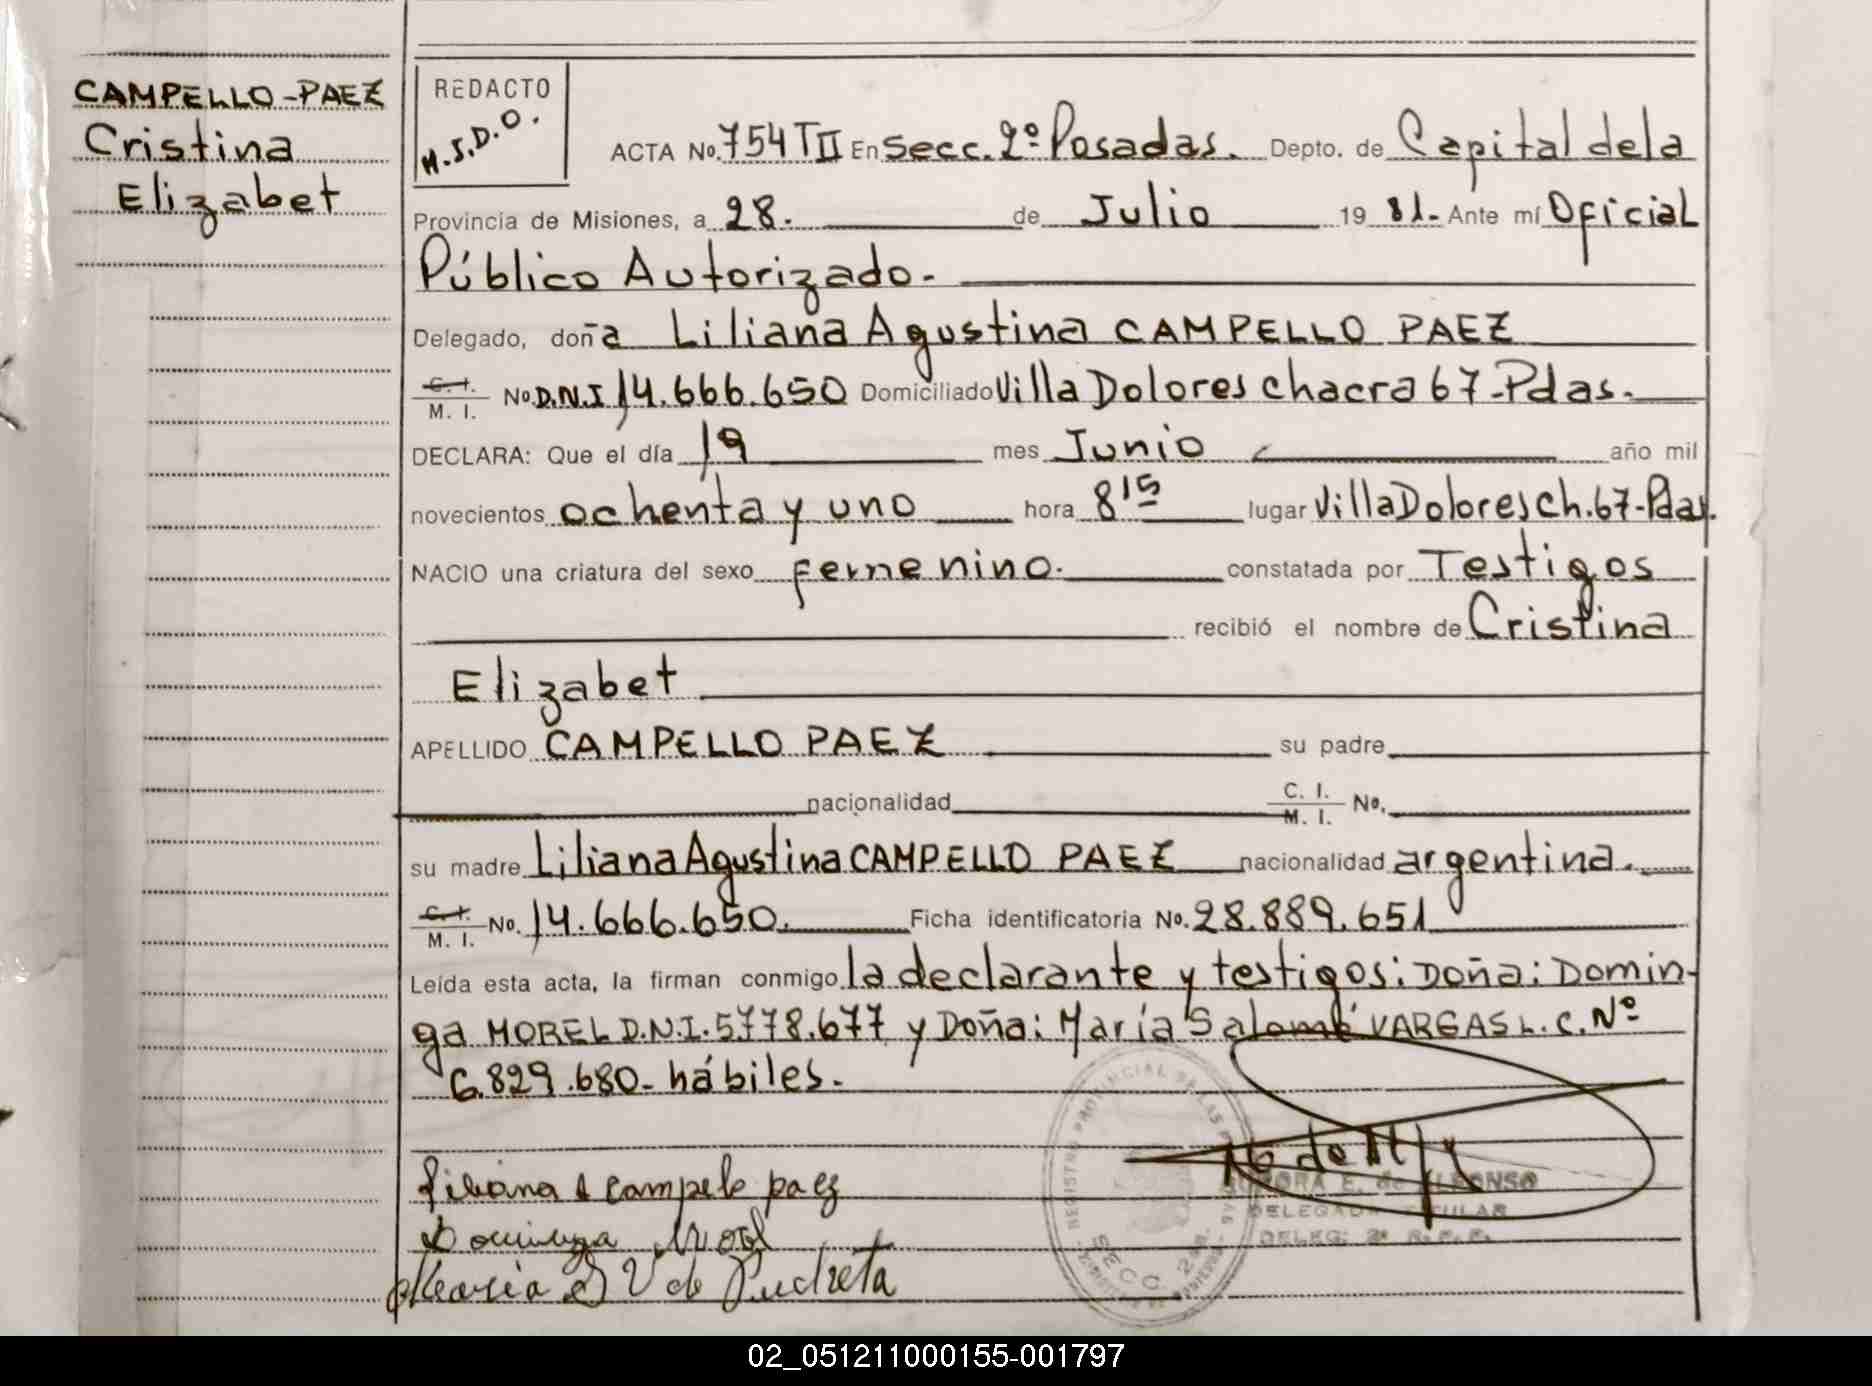 CAMPELLO-PAEZ
Cristina
Elizabet
REDACTO
M.S.D.O.
ACTA No. 754 T II En Secc. 2º Posadas. Depto. de Capital de la
Provincia de Misiones, a 28. de Julio 19 81.- Ante mí Oficial
Público Autorizado.-
Delegado, doña Liliana Agustina CAMPELLO PAEZ
C. I. / M. I. No. D.N.I 14.666.650 Domiciliado Villa Dolores chacra 67-Pdas.
DECLARA: Que el día 19 mes Junio año mil
novecientos ochenta y uno hora 8 15 lugar Villa Dolores Ch.67-Pdas.
NACIO una criatura del sexo femenino. constatada por Testigos
recibió el nombre de Cristina
Elizabet
APELLIDO CAMPELLO PAEZ su padre
nacionalidad C. I. / M. I. No.
su madre Liliana Agustina CAMPELLO PAEZ nacionalidad argentina.
C. I. / M. I. No. 14.666.650. Ficha identificatoria No. 28.889.651
Leída esta acta, la firman conmigo la declarante y testigos: Doña: Domin-
ga MOREL D.N.I. 5.778.677 y Doña: María Salomé VARGAS L.C. Nº
6.829.680- hábiles.
Liliana A campelo paez
Dominga Morel
Maria S V de
REGISTRO PROVINCIAL DE LAS
SECC. 2da.
AURORA E. de ALFONSO
DELEGADA TITULAR
DELEG. 2ª R. P. P.
02_051211000155-001797